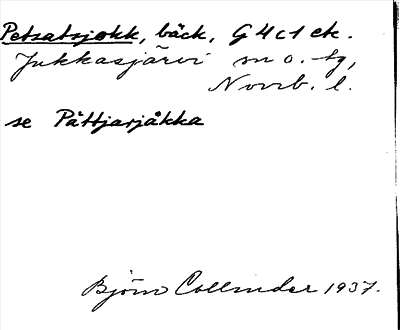 Petsatsjokk, bäck, G4c1 ek.
Jukkasjärvi sn o. tg,
Norrb. l.
se Påttjarjåkka
Björn Collinder 1937.